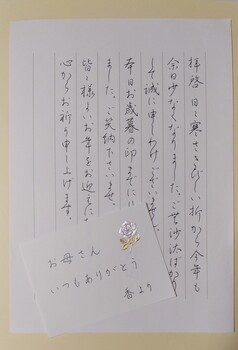 拝啓 日々寒さきびしい折から今年も
余日少なくなりました。ご無沙汰ばかり
して誠に申しわけございません。
本日お歳暮の印までに
ました。ご笑納下さいませ。
皆々様よいお年をお迎え
心からお祈り申し上げます。
お母さん
いつもありがとう
香より